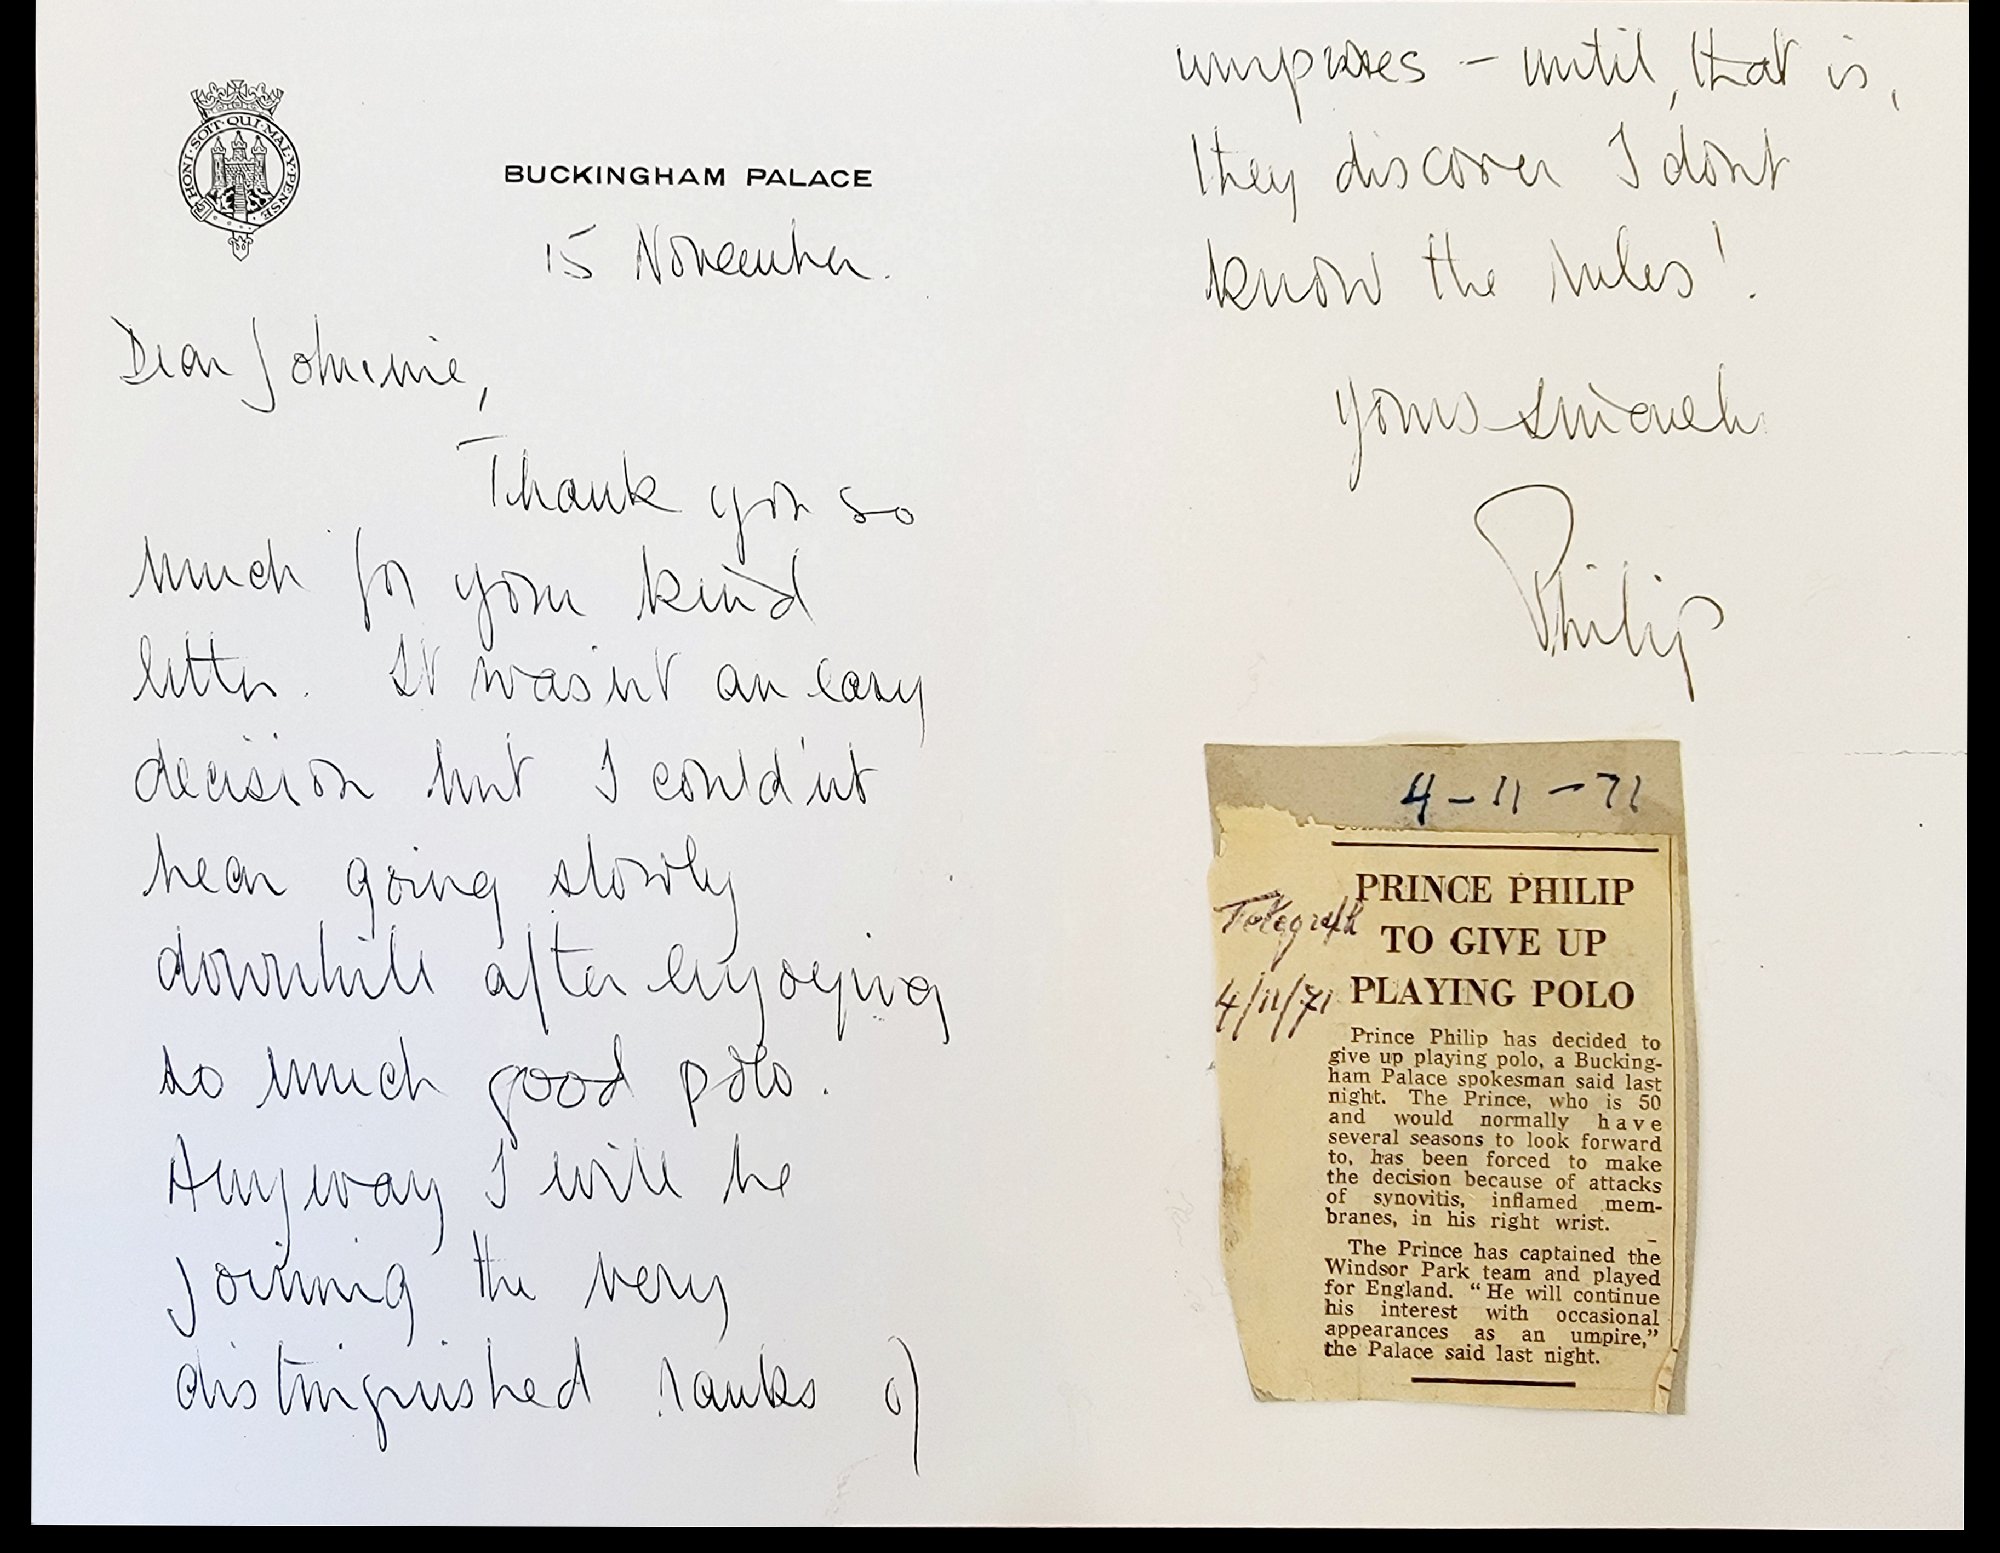 HONI·SOIT·QUI·MAL·Y·PENSE
BUCKINGHAM PALACE
15 November.
Dear Johnnie,
Thank you so
much for your kind
letter. It was'nt an easy
decision but I could'nt
bear going slowly
downhill after enjoying
so much good polo.
Anyway I will be
joining the very
distinguished ranks of
umpires – until, that is,
they discover I dont
know the rules!
Yours sincerely
Philip
4-11-71
Telegraph
4/11/71
PRINCE PHILIP
TO GIVE UP
PLAYING POLO
Prince Philip has decided to
give up playing polo, a Bucking-
ham Palace spokesman said last
night. The Prince, who is 50
and would normally have
several seasons to look forward
to, has been forced to make
the decision because of attacks
of synovitis, inflamed mem-
branes, in his right wrist.
The Prince has captained the
Windsor Park team and played
for England. "He will continue
his interest with occasional
appearances as an umpire,"
the Palace said last night.